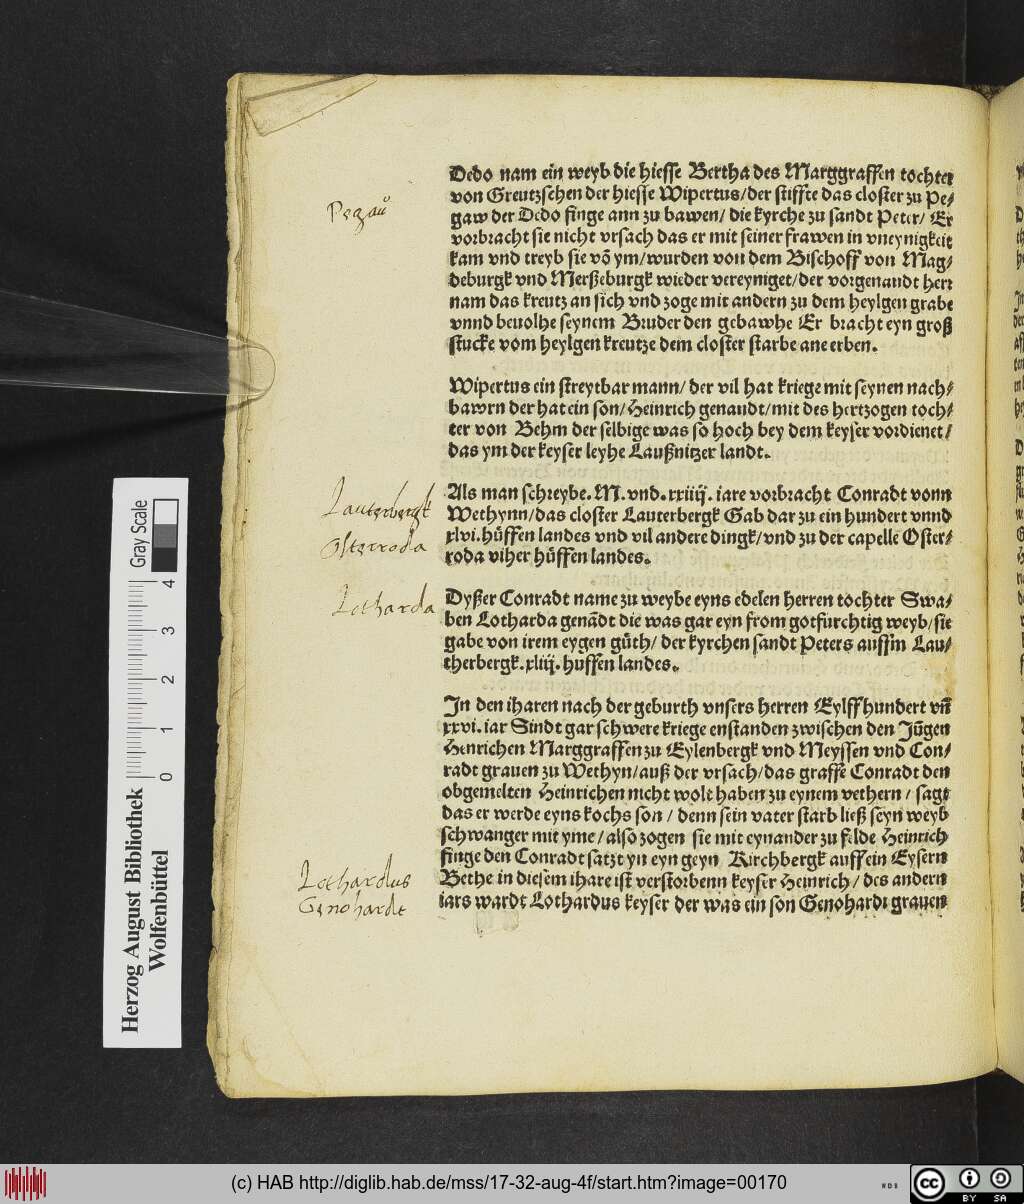 Dedo nam ein weyb die hiesse Bertha des Marggraffen tochter
von Greutzschen der hiesse Wipertus/der stiffte das closter zu Pe-
gaw der Dedo finge ann zu bawen/ die kyrche zu sandt Peter/ Er
vorbracht sie nicht vrsach das er mit seiner frawen in vneynigkeit
kam vnd treyb sie võ ym/wurden von dem Bischoff von Mag-
deburgk vnd Merßeburgk wieder vereyniget/der vorgenandt herr
nam das kreutz an sich vnd zoge mit andern zu dem heylgen grabe
vnnd beuolhe seynem Bruder den gebawhe Er bracht eyn groß
stucke vom heylgen kreutze dem closter starbe ane erben.
Pegaů
Wipertus ein streytbar mann/ der vil hat kriege mit seynen nach-
bawrn der hat ein son/Heinrich genandt/mit des hertzogen toch-
ter von Behm der selbige was so hoch bey dem keyser vordienet/
das ym der keyser leyhe Laußnitzer landt.
Als man schreybe. M. vnd. xxiiij. iare vorbracht Conradt vonn
Wethynn/das closter Lauterbergk Gab dar zu ein hundert vnnd
xlvi. hüffen landes vnd vil andere dingk/vnd zu der capelle Oster-
roda viher hüffen landes.
Lauterbergk
Osterroda
Dyßer Conradt name zu weybe eyns edelen herren tochter Swa-
ben Lotharda genãdt die was gar eyn from gotfurchtig weyb/sie
gabe von irem eygen güth/ der kyrchen sandt Peters auffm Lau-
therbergk. xliij. huffen landes.
Lotharda
In den iharen nach der geburth vnsers herren Eylffhundert vñ
xxvi. iar Sindt gar schwere kriege enstanden zwischen den Jũgen
Henrichen Marggraffen zu Eylenbergk vnd Meyssen vnd Con-
radt grauen zu Wethyn/auß der vrsach/das graffe Conradt den
obgemelten Heinrichen nicht wolt haben zu eynem vethern / sagt
das er werde eyns kochs son / denn sein vater starb ließ seyn weyb
schwanger mit yme / also zogen sie mit eynander zu felde Heinrich
finge den Conradt satzt yn eyn geyn Kirchbergk auff ein Eysern
Bethe in diesem ihare ist verstorbenn keyser Heinrich / des andern
iars wardt Lothardus keyser der was ein son Genohardi grauen
Lothardus
Genohardt
Herzog August Bibliothek
Wolfenbüttel
Gray Scale
0 1 2 3 4
(c) HAB http://diglib.hab.de/mss/17-32-aug-4f/start.htm?image=00170
cc BY SA